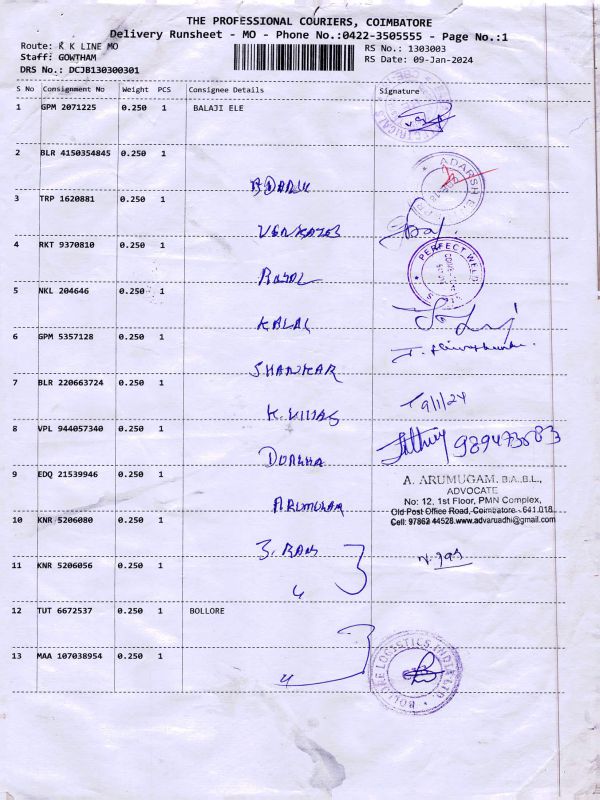 THE PROFESSIONAL COURIERS, COIMBATORE
Delivery Runsheet - MO - Phone No.:0422-3505555 - Page No.:1
Route: K K LINE MO
RS No.: 1303003
Staff: GOWTHAM
RS Date: 09-Jan-2024
DRS No.: DCJB130300301
S No Consignment No Weight PCS Consignee Details Signature
1 GPM 2071225 0.250 1 BALAJI ELE
2 BLR 4150354845 0.250 1
ADARSH
3 TRP 1620881 0.250 1
VENKATES
4 RKT 9370810 0.250 1
PERFECT WELD
ROYAL
5 NKL 204646 0.250 1
KALAI
6 GPM 5357128 0.250 1
SHANKAR
7 BLR 220663724 0.250 1
9/1/24
K. VILLAS
8 VPL 944057340 0.250 1
DURGHA
9 EDQ 21539946 0.250 1
A. ARUMUGAM, B.A.,B.L.,
ADVOCATE
No: 12, 1st Floor, PMN Complex,
Old Post Office Road, Coimbatore - 641 018
Cell: 97862 44528.www.advaruadhi@gmail.com
ARUMUGAM
10 KNR 5206080 0.250 1
11 KNR 5206056 0.250 1
12 TUT 6672537 0.250 1 BOLLORE
13 MAA 107038954 0.250 1
BOLLORE LOGISTICS INDIA LTD.